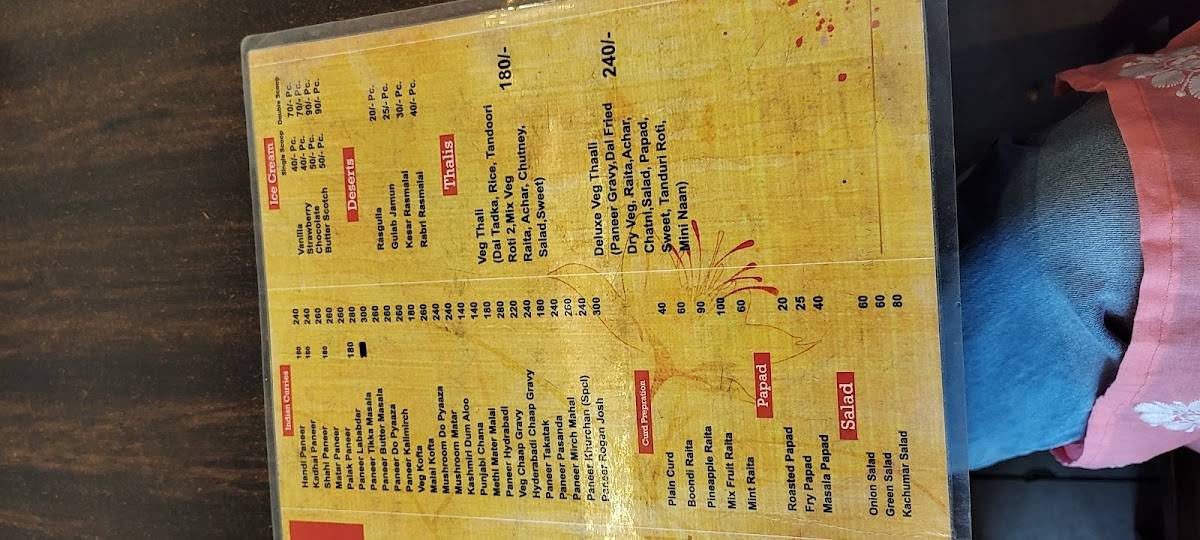 Indian Curries
Handi Paneer 180 240
Kadhai Paneer 180 240
Shahi Paneer 180 260
Matar Paneer 260
Palak Paneer 260
Paneer Lababdar 180 280
Paneer Tikka Masala 300
Paneer Butter Masala 260
Paneer Do Pyaaza 260
Paneer Kalimirch 260
Veg Kofta 180
Malai Kofta 260
Mushroom Do Pyaaza 240
Mushroom Matar 240
Kashmiri Dum Aloo 140
Punjabi Chana 140
Methi Mater Malai 180
Paneer Hydrabadi 280
Veg Chaap Gravy 220
Hyderabadi Chaap Gravy 240
Paneer Takatak 180
Paneer Pasanda 240
Paneer Mirch Mahal 260
Paneer Khurchan (Spcl) 240
Paneer Rogan Josh 300
Curd Prepration
Plain Curd 40
Boondi Raita 60
Pineapple Raita 90
Mix Fruit Raita 100
Mint Raita 60
Papad
Roasted Papad 20
Fry Papad 25
Masala Papad 40
Salad
Onion Salad 60
Green Salad 60
Kachumar Salad 80
Ice Cream
Single Scoop Double Scoop
Vanilla 40/- Pc. 70/- Pc.
Strawberry 40/- Pc. 70/- Pc.
Chocolate 50/- Pc. 90/- Pc.
Butter Scotch 50/- Pc. 90/- Pc.
Deserts
Rasgulla 20/- Pc.
Gulab Jamun 25/- Pc.
Kesar Rasmalai 30/- Pc.
Rabri Rasmalai 40/- Pc.
Thalis
Veg Thali
(Dal Tadka, Rice, Tandoori
Roti 2,Mix Veg 180/-
Raita, Achar, Chutney,
Salad,Sweet)
Deluxe Veg Thaali
(Paneer Gravy,Dal Fried 240/-
Dry Veg, Raita,Achar,
Chatni,Salad, Papad,
Sweet, Tanduri Roti,
Mini Naan)